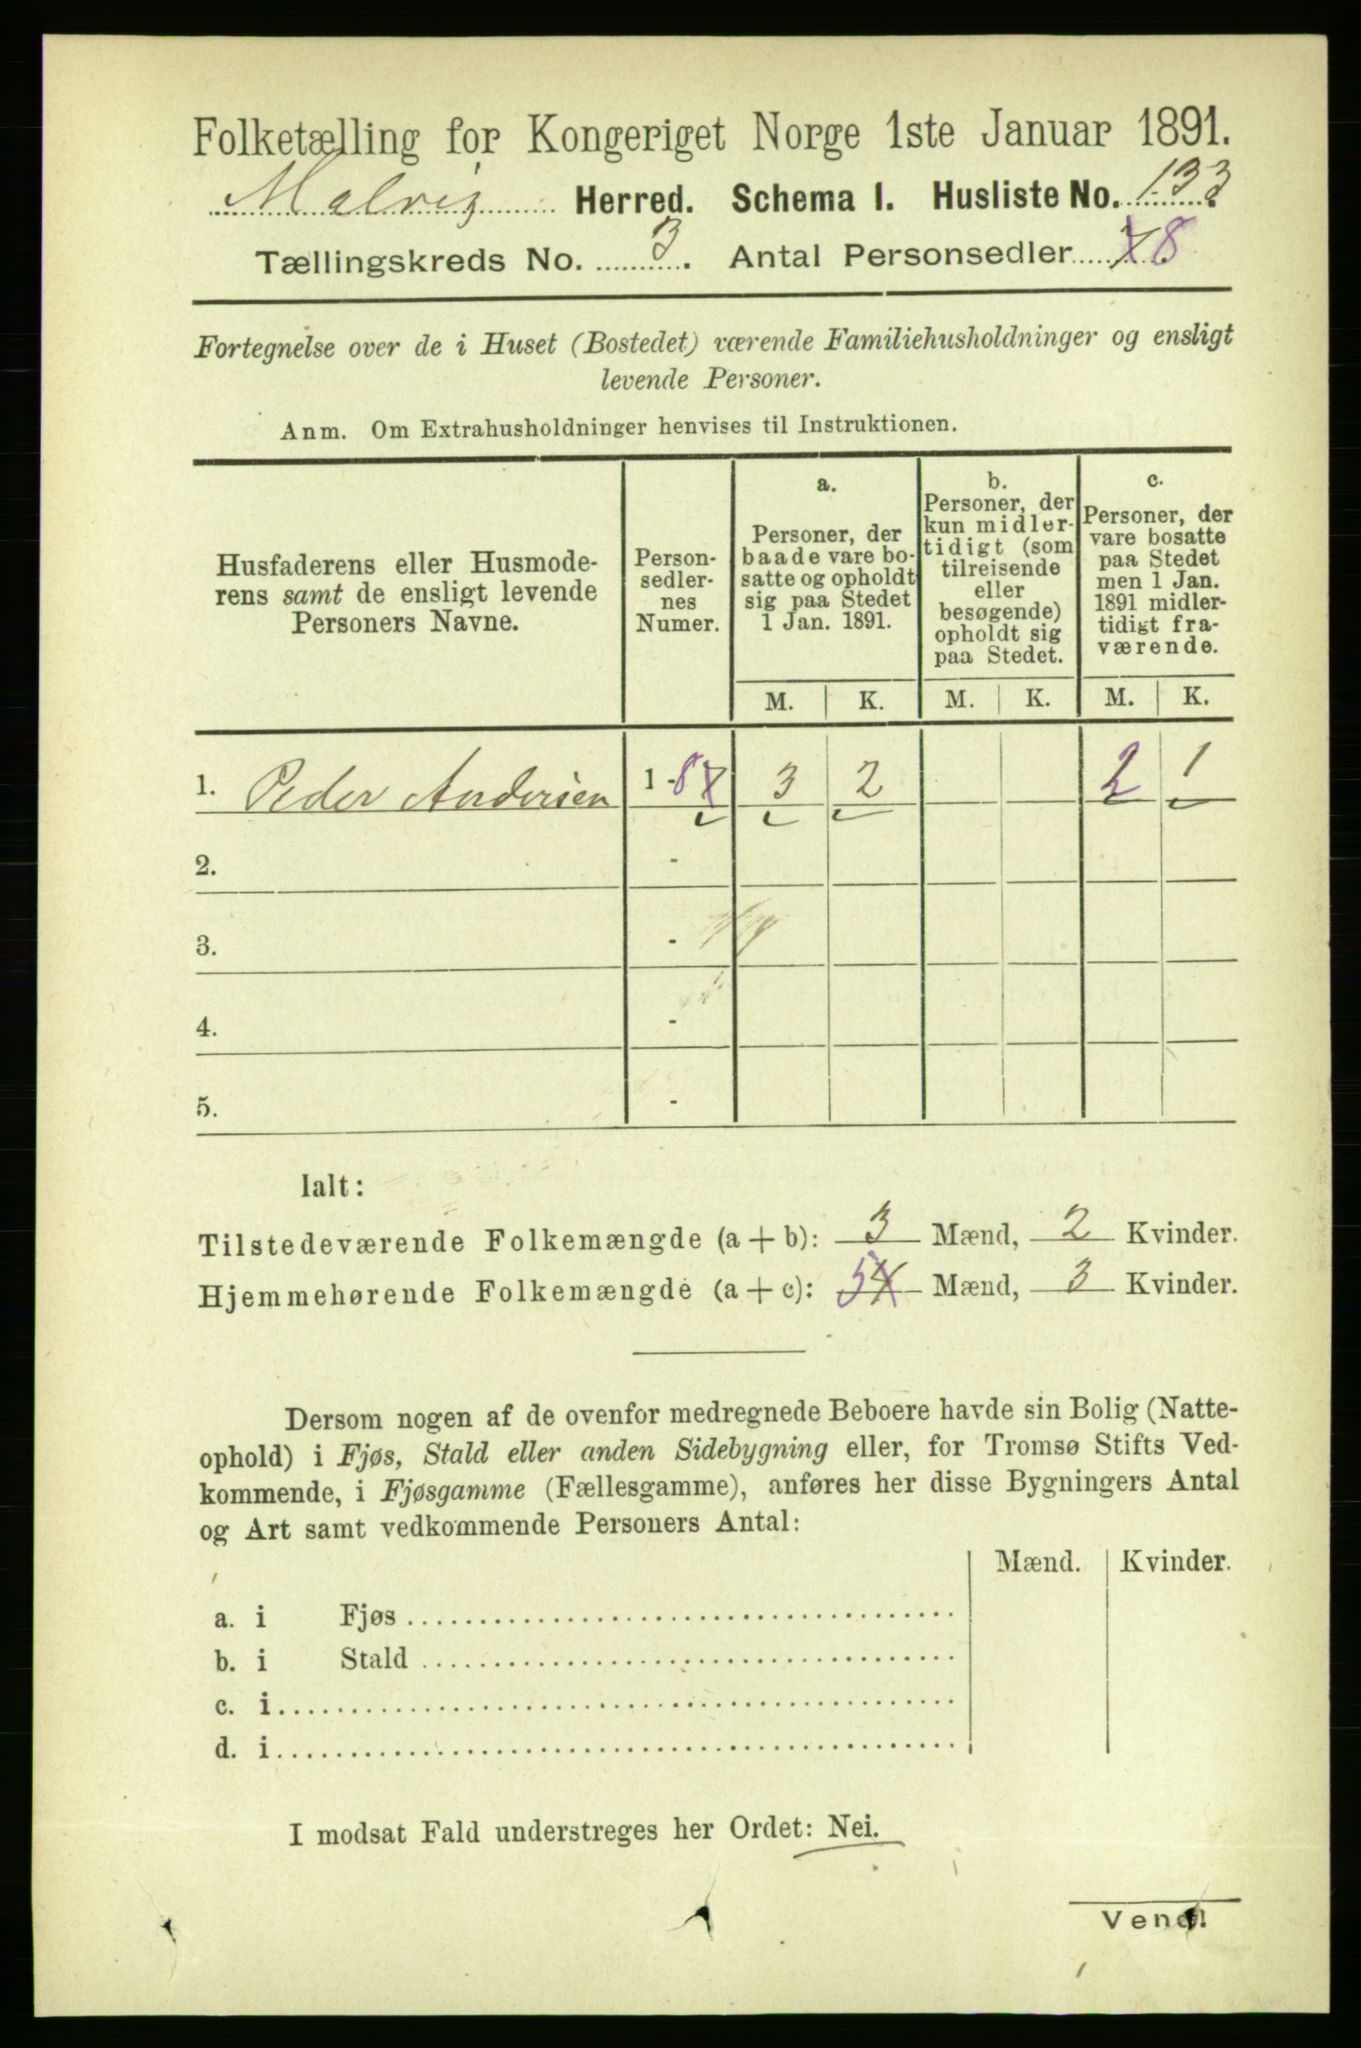 Folketælling for Kongeriget Norge 1ste Januar 1891.
Malvig Herred. Schema I. Husliste No. 133
Tællingskreds No. 3. Antal Personsedler 7 8
Fortegnelse over de i Huset (Bostedet) værende Familiehusholdninger og ensligt
levende Personer.
Anm. Om Extrahusholdninger henvises til Instruktionen.
Husfaderens eller Husmode-
rens samt de ensligt levende
Personers Navne.
Person-
sedler-
nes
Numer.
a.
Personer, der
baade vare bo-
satte og opholdt
sig paa Stedet
1 Jan. 1891.
b.
Personer, der
kun midler-
tidigt (som
tilreisende
eller
besøgende)
opholdt sig
paa Stedet.
c.
Personer, der
vare bosatte
paa Stedet
men 1 Jan.
1891 midler-
tidigt fra-
værende.
M. K. M. K. M. K.
1. Peder Andersen 1 - 8 7 3 2 2 1
2. -
3. -
4. -
5. -
Ialt:
Tilstedeværende Folkemængde (a + b): 3 Mænd, 2 Kvinder.
Hjemmehørende Folkemængde (a + c): 5 4 Mænd, 3 Kvinder.
Dersom nogen af de ovenfor medregnede Beboere havde sin Bolig (Natte-
ophold) i Fjøs, Stald eller anden Sidebygning eller, for Tromsø Stifts Ved-
kommende, i Fjøsgamme (Fællesgamme), anføres her disse Bygningers Antal
og Art samt vedkommende Personers Antal:
Mænd. Kvinder.
a. i Fjøs
b. i Stald
c. i
d. i
I modsat Fald understreges her Ordet: Nei.
Vend!